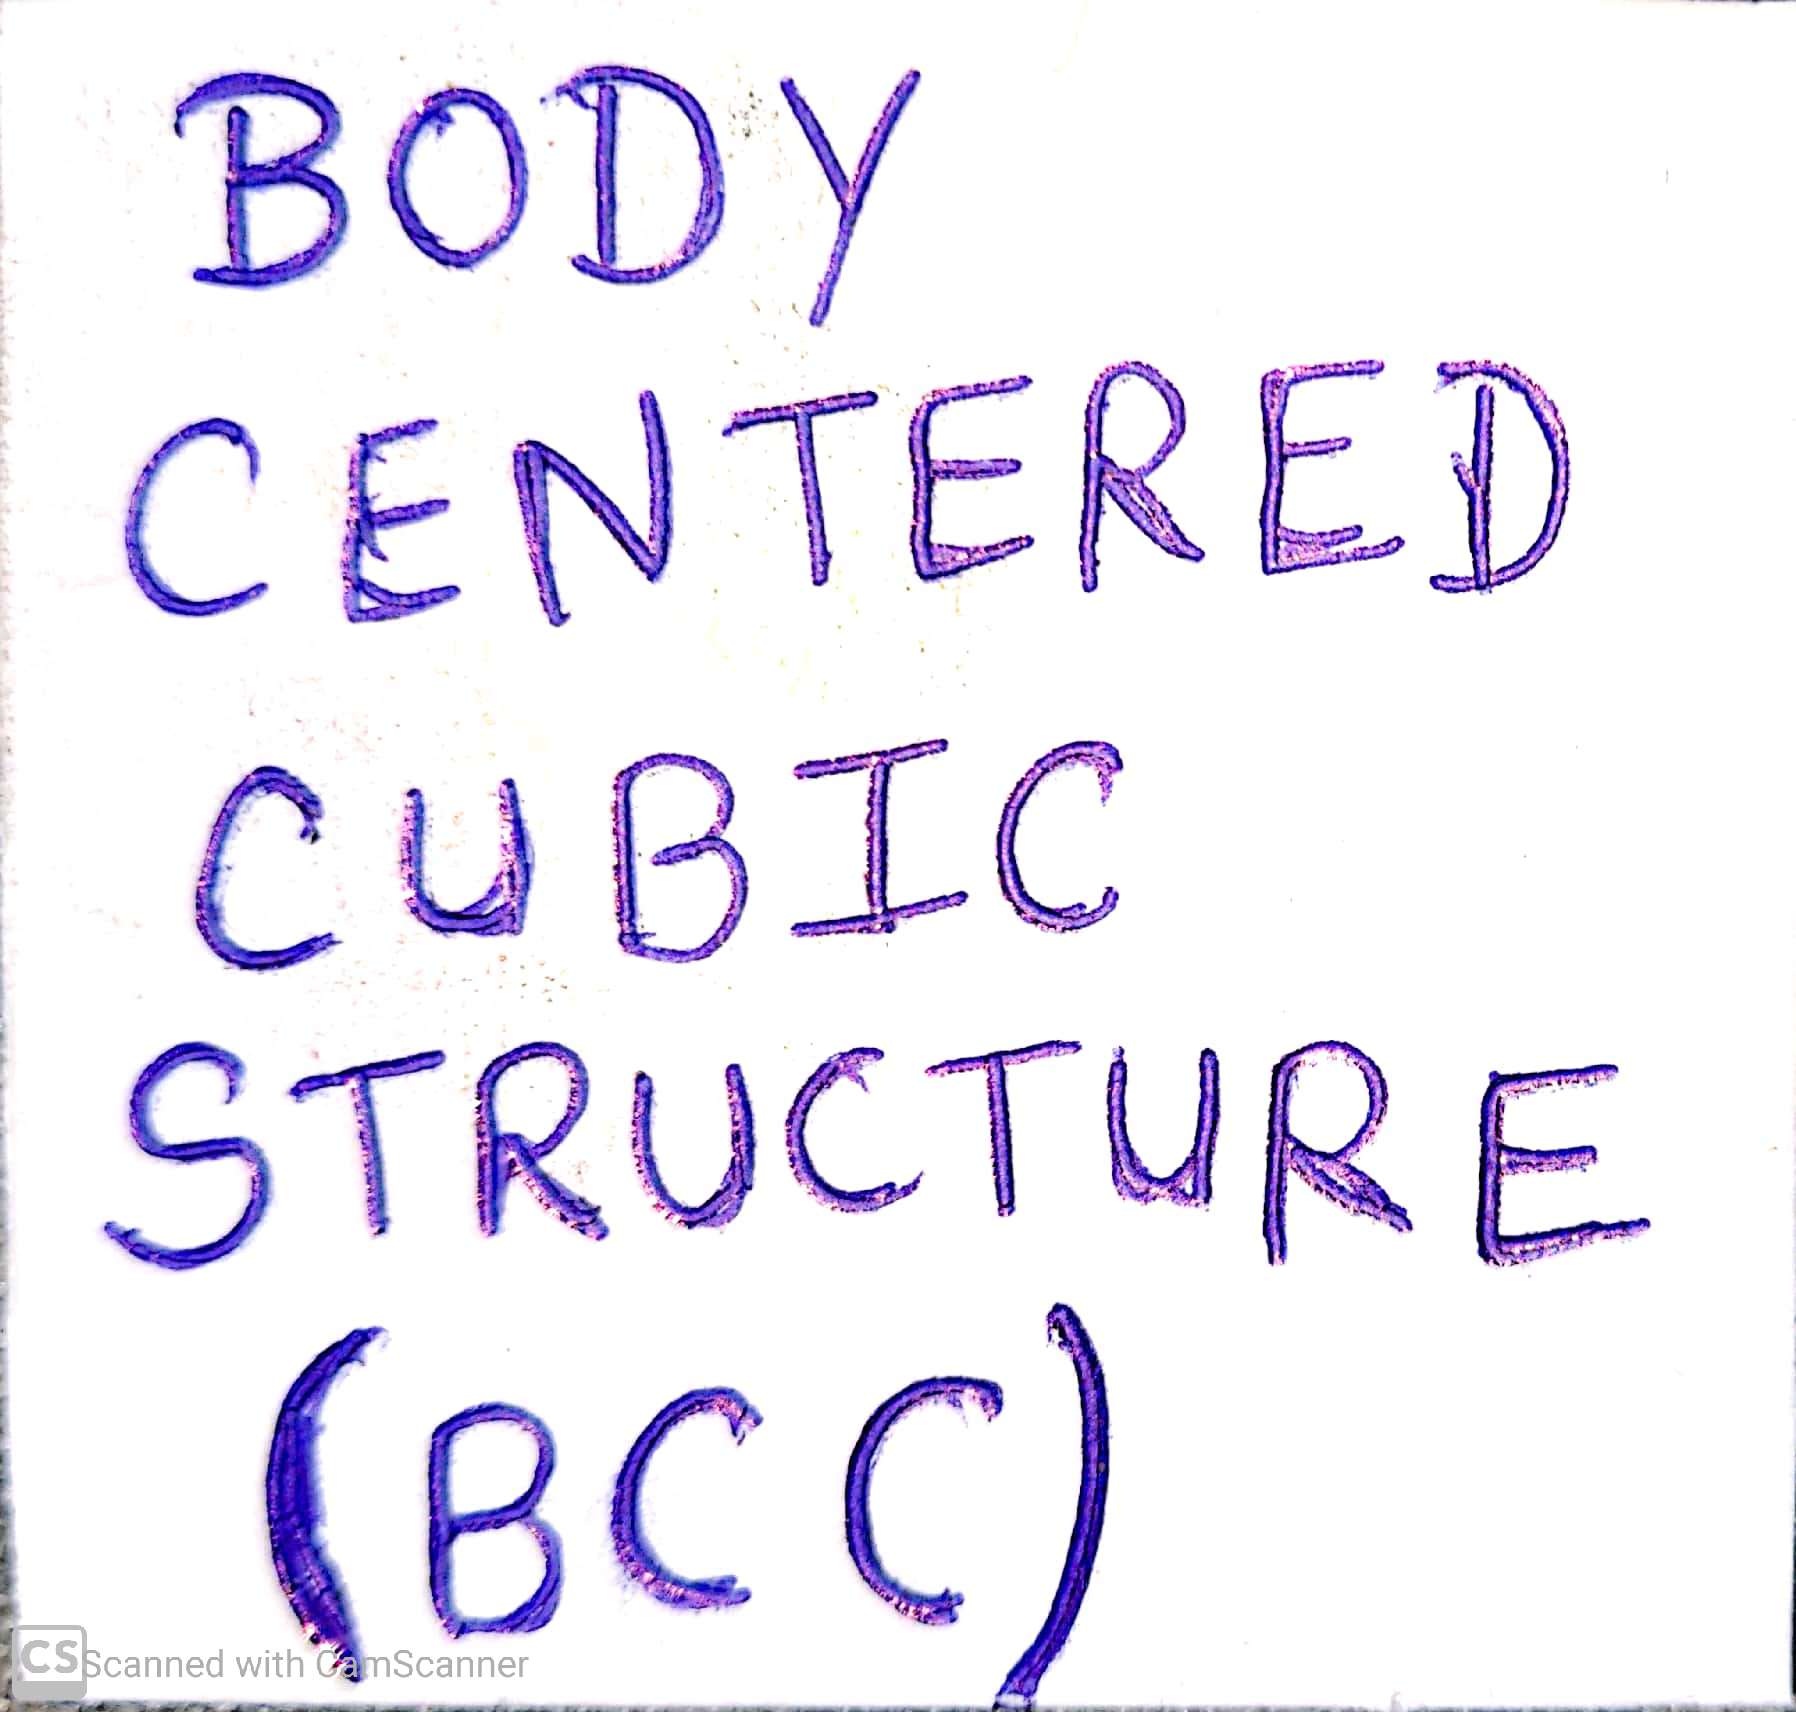 BODY
CENTERED
CUBIC
STRUCTURE
(BCC)
CS Scanned with CamScanner